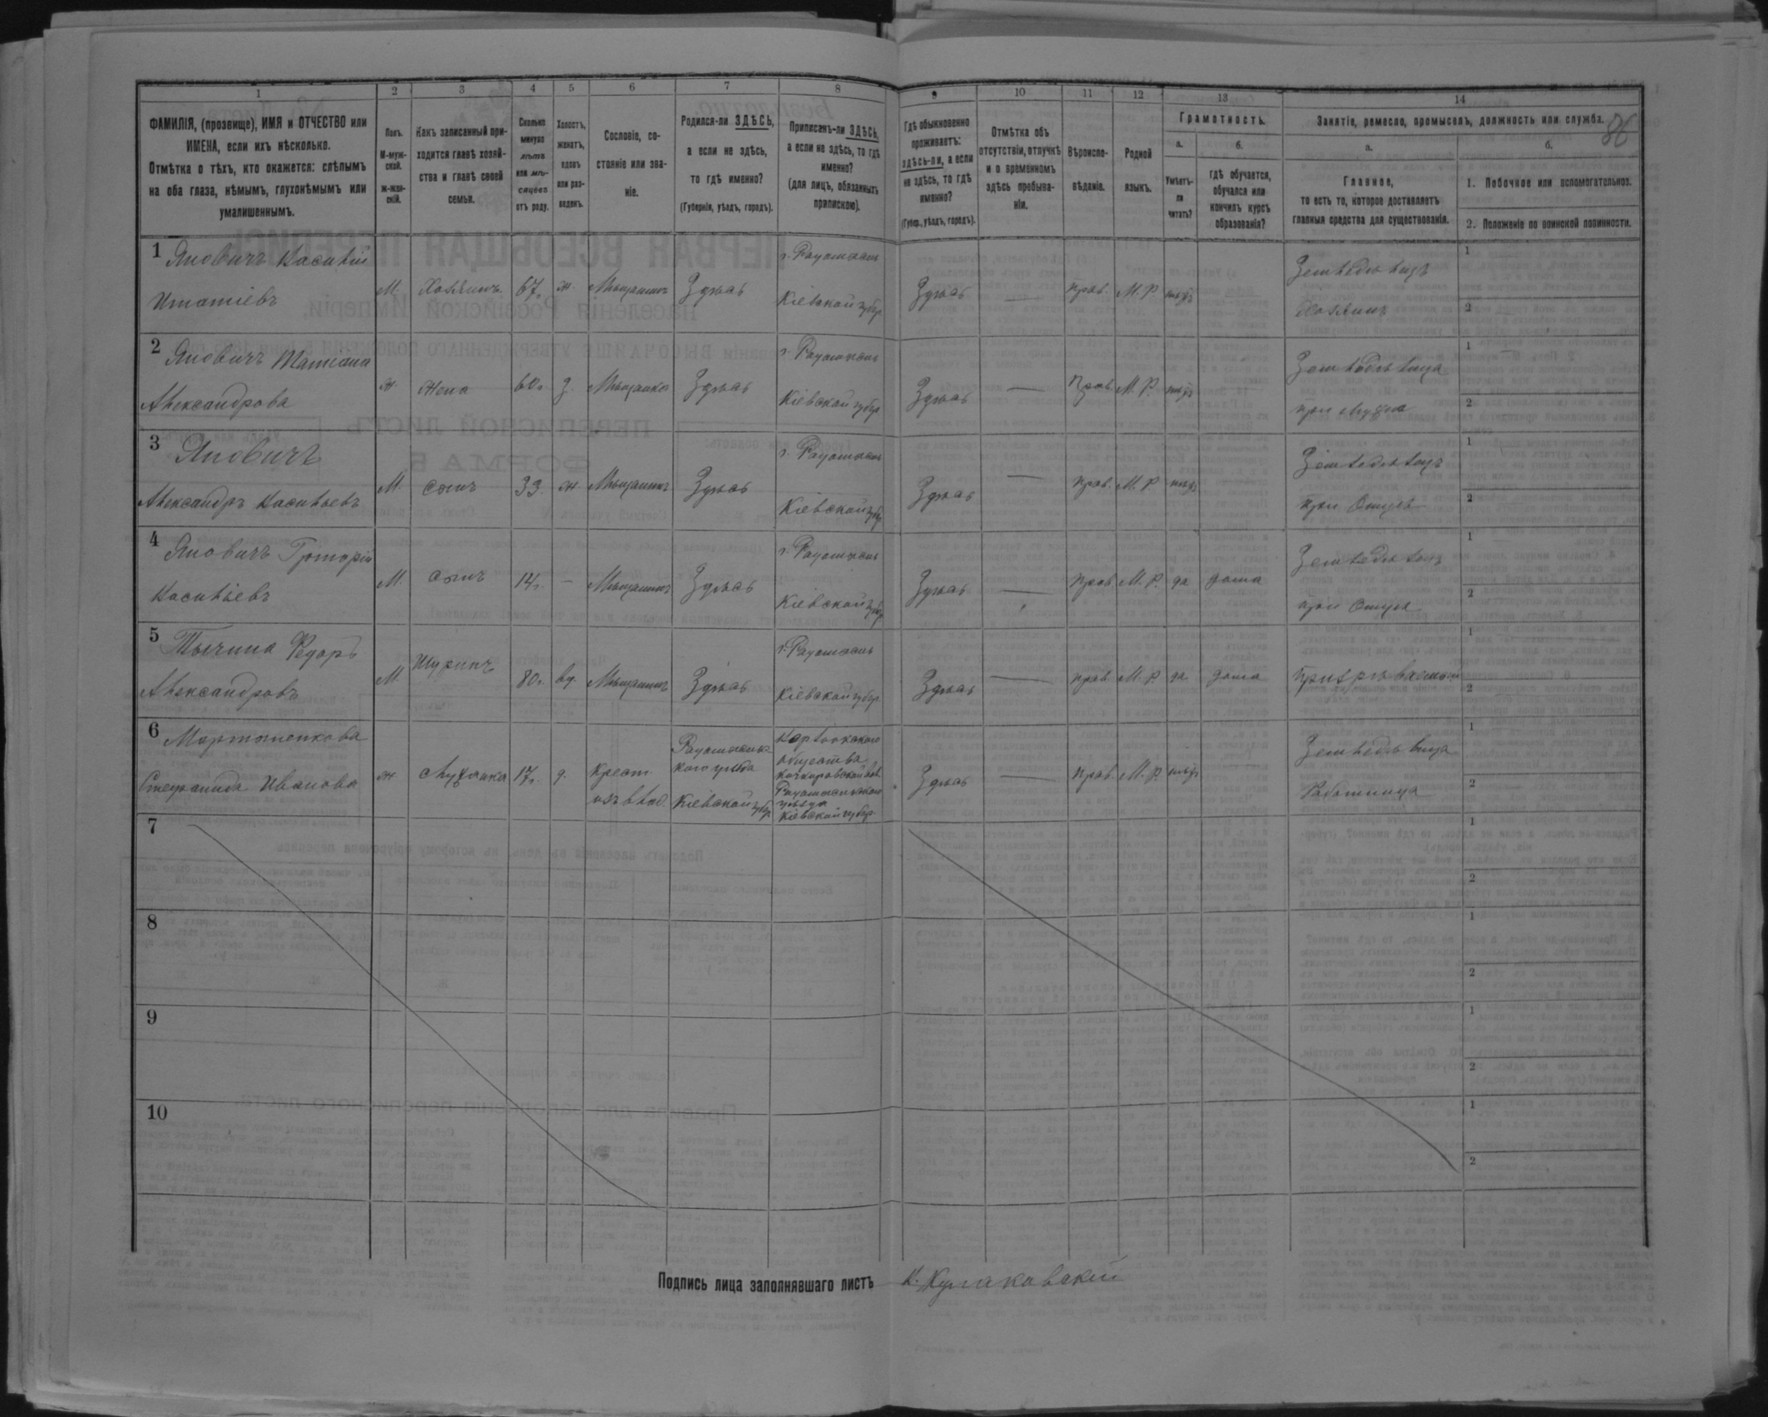 1 2 3 4 5 6 7 8 9 10 11 12 13 14
ФАМИЛІЯ, (прозвище), ИМЯ и ОТЧЕСТВО или
ИМЕНА, если ихъ нѣсколько.
Отмѣтка о тѣхъ, кто окажется: слѣпымъ
на оба глаза, нѣмымъ, глухонѣмымъ или
умалишеннымъ.
Полъ.
М-муж-
ской.
Ж-жен-
скій.
Какъ записанный при-
ходится главѣ хозяй-
ства и главѣ своей
семьи.
Сколько
минуло
лѣтъ
или мѣ-
сяцевъ
отъ роду.
Холостъ,
женатъ,
вдовъ
или раз-
веденъ.
Сословіе, со-
стояніе или зва-
ніе.
Родился-ли ЗДѢСЬ,
а если не здѣсь,
то гдѣ именно?
(Губернія, уѣздъ, городъ).
Приписанъ-ли ЗДѢСЬ,
а если не здѣсь, то гдѣ
именно?
(для лицъ, обязанныхъ
припискою).
Гдѣ обыкновенно
проживаетъ:
здѣсь-ли, а если
не здѣсь, то гдѣ
именно?
(Губер., уѣздъ, городъ).
Отмѣтка объ
отсутствіи, отлучкѣ
и о временномъ
здѣсь пребыва-
ніи.
Вѣроиспо-
вѣданіе.
Родной
языкъ.
Грамотность.
а.
Умѣетъ-
ли
читать?
б.
гдѣ обучается,
обучался или
кончилъ курсъ
образованія?
Занятіе, ремесло, промыселъ, должность или служба.
86
а.
Главное,
то есть то, которое доставляетъ
главныя средства для существованія.
б.
1. Побочное или вспомогательное.
2. Положеніе по воинской повинности.
1 Яновичъ Касиянъ
Игнатіевъ
М. Хозяинъ 67. ж. Мѣщанинъ Здѣсь
г. Радомысль
Кіевской губ.
Здѣсь — прав. М.Р. нѣтъ
Земледѣлецъ
Хозяинъ
1
2
2 Яновичъ Татіана
Александрова
ж. жена 60. з. Мѣщанка Здѣсь
г. Радомысль
Кіевской губ.
Здѣсь — Прав. М.Р. нѣтъ
Земледѣлица
при мужѣ
1
2
3 Яновичъ
Александръ
М. сынъ 33 ж Мѣщанинъ Здѣсь
г. Радомысль
Кіевской губ.
Здѣсь — прав. М.Р. нѣтъ
Земледѣлецъ
при Отцѣ
1
2
4 Яновичъ Григорій
М. сынъ 14. — Мѣщанинъ Здѣсь
г. Радомысль
Кіевской губ.
Здѣсь — прав М.Р. да дома
Земледѣлецъ
при Отцѣ
1
2
5 Тычина Ѳедоръ
Александровъ
М. Шуринъ 80. вд. Мѣщанинъ Здѣсь
г. Радомысль
Кіевской губ.
Здѣсь — прав М.Р. да дома
1
2
6 Мартыненкова
Степанида Иванова
ж 17. д.
Крест.
изъ влад.
Радомысльс-
каго уѣзда
Кіевской губ.
общества
Радомысльскаго
уѣзда
Кіевской губ.
Здѣсь — прав. М.Р. нѣтъ
Земледѣлица
Работница
1
2
7
1
2
8
1
2
9
1
2
10
1
2
Подпись лица заполнявшаго листъ